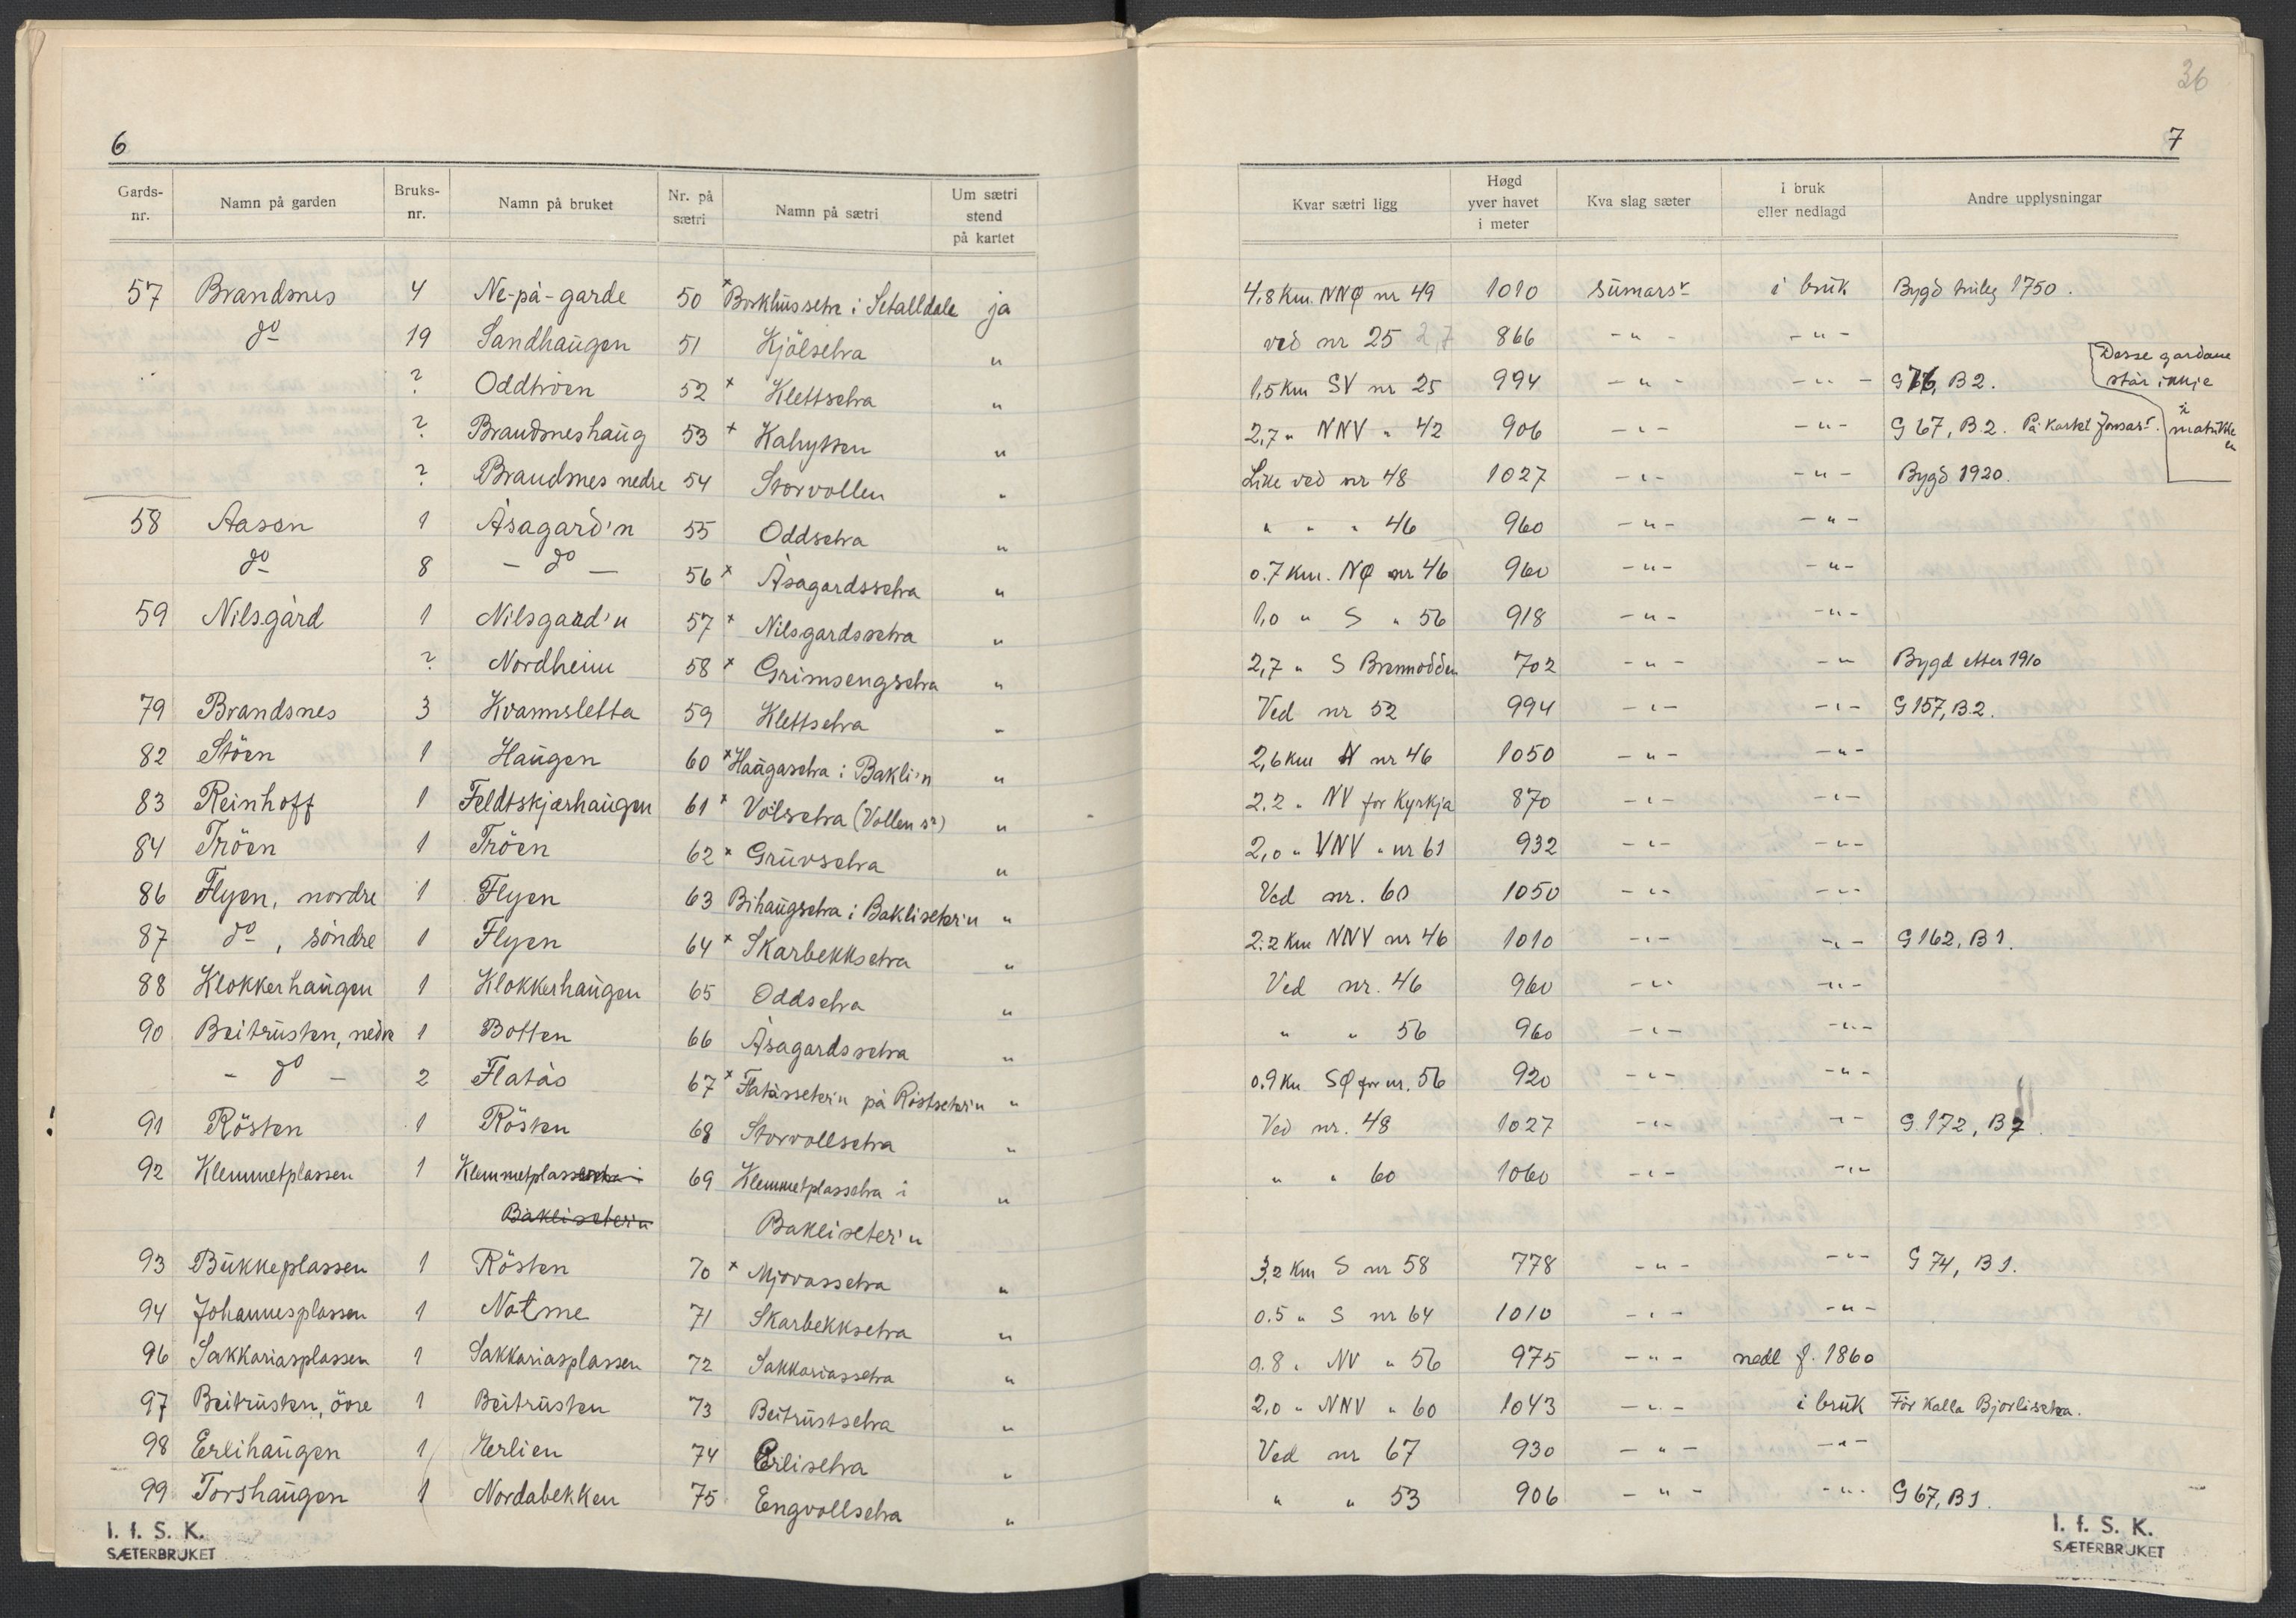 36
6
7
Gards-nr. Namn på garden Bruks-nr. Namn på bruket Nr. på sætri Namn på sætri Um sætri stend på kartet Kvar sætri ligg Høgd yver havet i meter Kva slag sæter I bruk eller nedlagd Andre upplysningar
57 Brandsnes 4 Ne-på-garde 50 x i Setalldale ja 4,8 Km. NNØ nr 49 1010 sumarsr i bruk Bygd truleg 1750.
do 19 Sandhaugen 51 Kjölsetra " ved nr 25 2,7 866 -"- -"-
? Oddtröen 52 x Klettsetra " 1,5 Km SV nr 25 994 -"- -"- B2. Desse gardane står inkje i
? Brandsneshaug 53 + Kalrytten " 2,7 " NNV " 42 906 -"- -"- G 67, B.2. På kartet
? Brandsnes nedre 54 Storvollen " Like ved nr 48 1027 -"- -"- Bygd 1920.
58 Aasen 1 Åsagard'n 55 Oddsetra " " " " 46 960 -"- -"-
do 8 - do - 56 x Åsagardssetra " 0.7 Km. NØ nr 46 960 -"- -"-
59 Nilsgård 1 Nilsgard'n 57 x Nilsgardssetra " 1,0 " S " 56 918 -"- -"-
? Nordheim 58 x Grimsengsetra " 2,7 " S Brennodden 702 -"- -"- Bygd etter 1910
79 Brandsnes 3 Kvannsletta 59 Klettsetra " Ved nr 52 994 -"- -"- G 157, B.2.
82 Stöen 1 Haugen 60 x Haugasetra i Bakli'n " 2,6 Km N nr 46 1050 -"- -"-
83 Reinhoff 1 Feldtskjærhaugen 61 x Volsetra (Vollen sr) " 2.2 " NV for Kyrkja 870 -"- -"-
84 Tröen 1 Tröen 62 x Gruvsetra " 2,0 " VNV " nr 61 932 -"- -"-
86 Flyen, nordre 1 Flyen 63 Bihaugsetra i Bakliseter'n " Ved nr. 60 1050 -"- -"-
87 do, söndre 1 Flyen 64 x Skarbekksetra " 2.2 Km NNV nr 46 1010 -"- -"- G 162, B 1.
88 Klokkerhaugen 1 Klokkerhaugen 65 Oddsetra " Ved nr. 46 960 -"- -"-
90 Beitrusten, nedre 1 Botten 66 Åsagardssetra " " " 56 960 -"- -"-
- do - 2 Flatås 67 x Flatåsseter'n på Röstseter'n " 0.9 Km SØ for nr. 56 920 -"- -"-
91 Rösten 1 Rösten 68 Storvollsetra " Ved nr. 48 1027 -"- -"- G. 172, B
92 Klemmetplassen 1 Klemmetplass 69 Klemmetplassetra i " " " 60 1060 -"- -"-
Bakliseter'n Bakliseter'n
93 Bukkeplassen 1 Rösten 70 x Mjovassetra " 3,2 Km S nr 58 778 -"- -"- G 74, B 1.
94 Johannesplassen 1 Notme 71 Skarbekksetra " 0.5 " S nr 64 1010 -"- -"-
96 Sakkariasplassen 1 Sakkariasplassen 72 Sakkariassetra " 0.8 " NV " 56 975 -"- nedl f. 1860
97 Beitrusten, övre 1 Beitrusten 73 Beitrustsetra " 2,0 " NNV " 60 1043 -"- i bruk För kalla Bjorlisetra.
98 Erlihaugen 1 Erlien 74 Erlisetra " Ved nr 67 930 -"- -"-
99 Torshaugen 1 Nordabekken 75 Engvollsetra " " " 53 906 -"- -"- G 67, B 1.
I. f. S. K.
SÆTERBRUKET
I. f. S. K.
SÆTERBRUKET